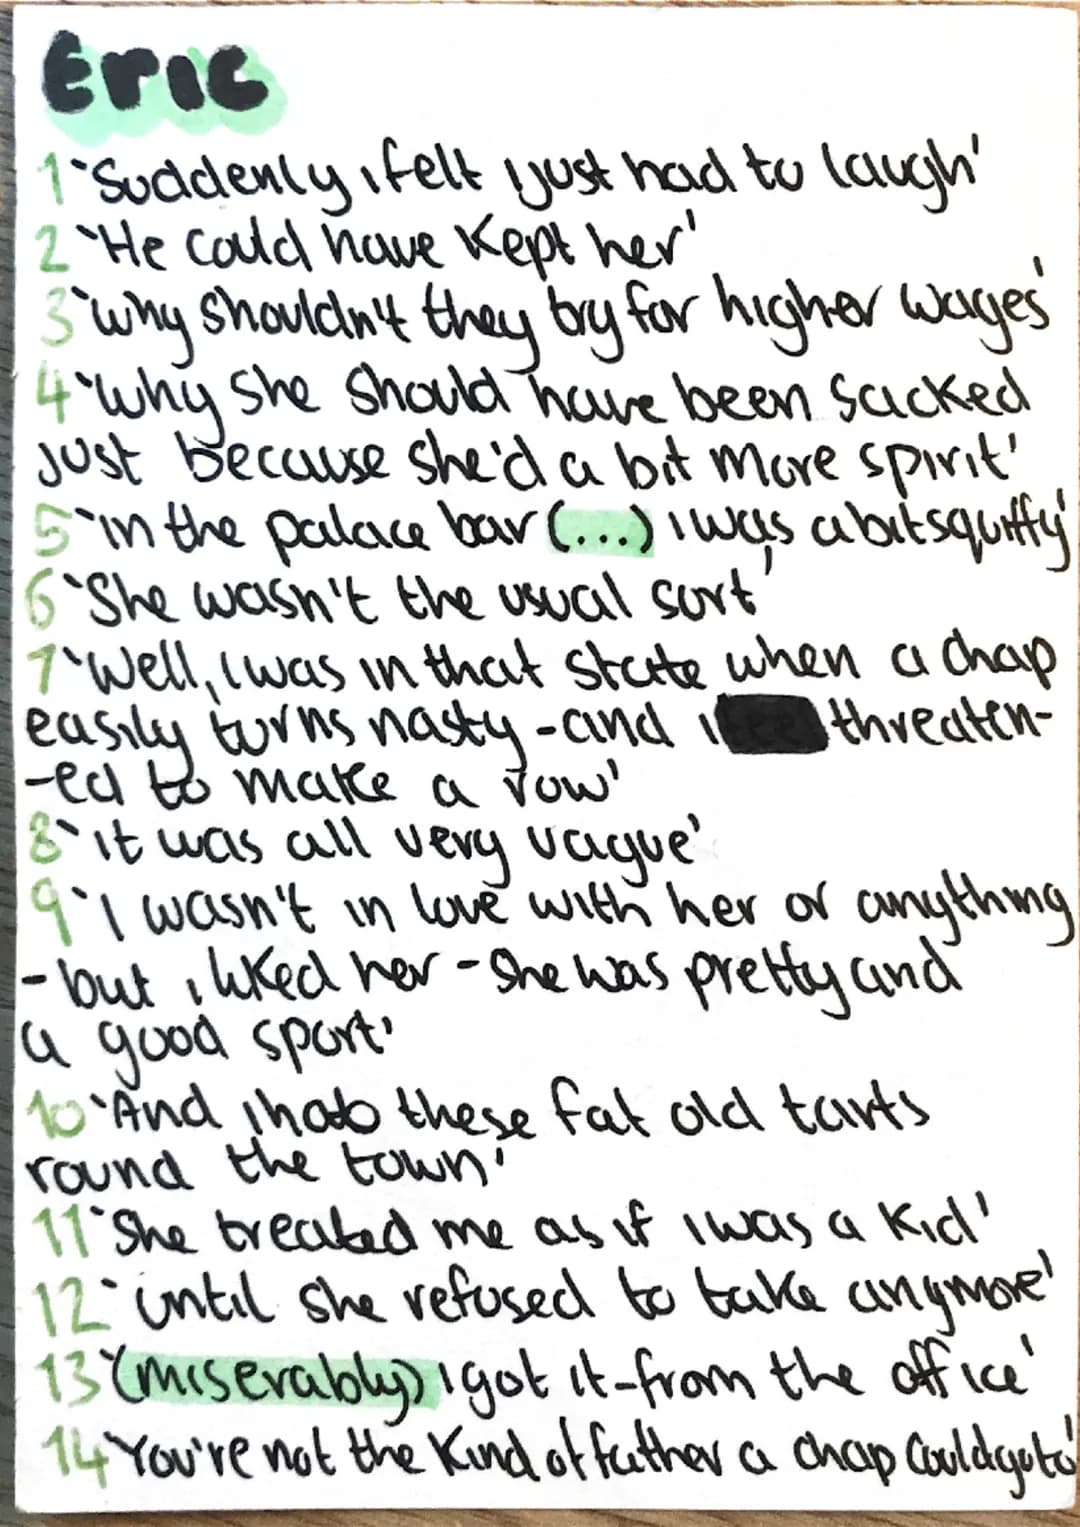 Eric
1 'Suddenly i felt ijust had to laugh'
2 'He could have kept her'
3 'why shouldn't they try for higher wages'
4 'why she should have been sacked
just because she'd a bit more spirit'
5 'in the palace bar (...) i was a bit squiffy'
6 'She wasn't the usual sort'
7 'Well, i was in that state when a chap
easily turns nasty - and i threaten-
-ed to make a row'
8 'it was all very vague'
9 'I wasn't in love with her or anything
- but i liked her - she was pretty and
a good sport'
10 'And i hate these fat old tarts
round the town'
11 'She treated me as if i was a kid'
12 'until she refused to take anymore'
13 '(miserably) i got it - from the office'
14 'You're not the kind of father a chap could go to'